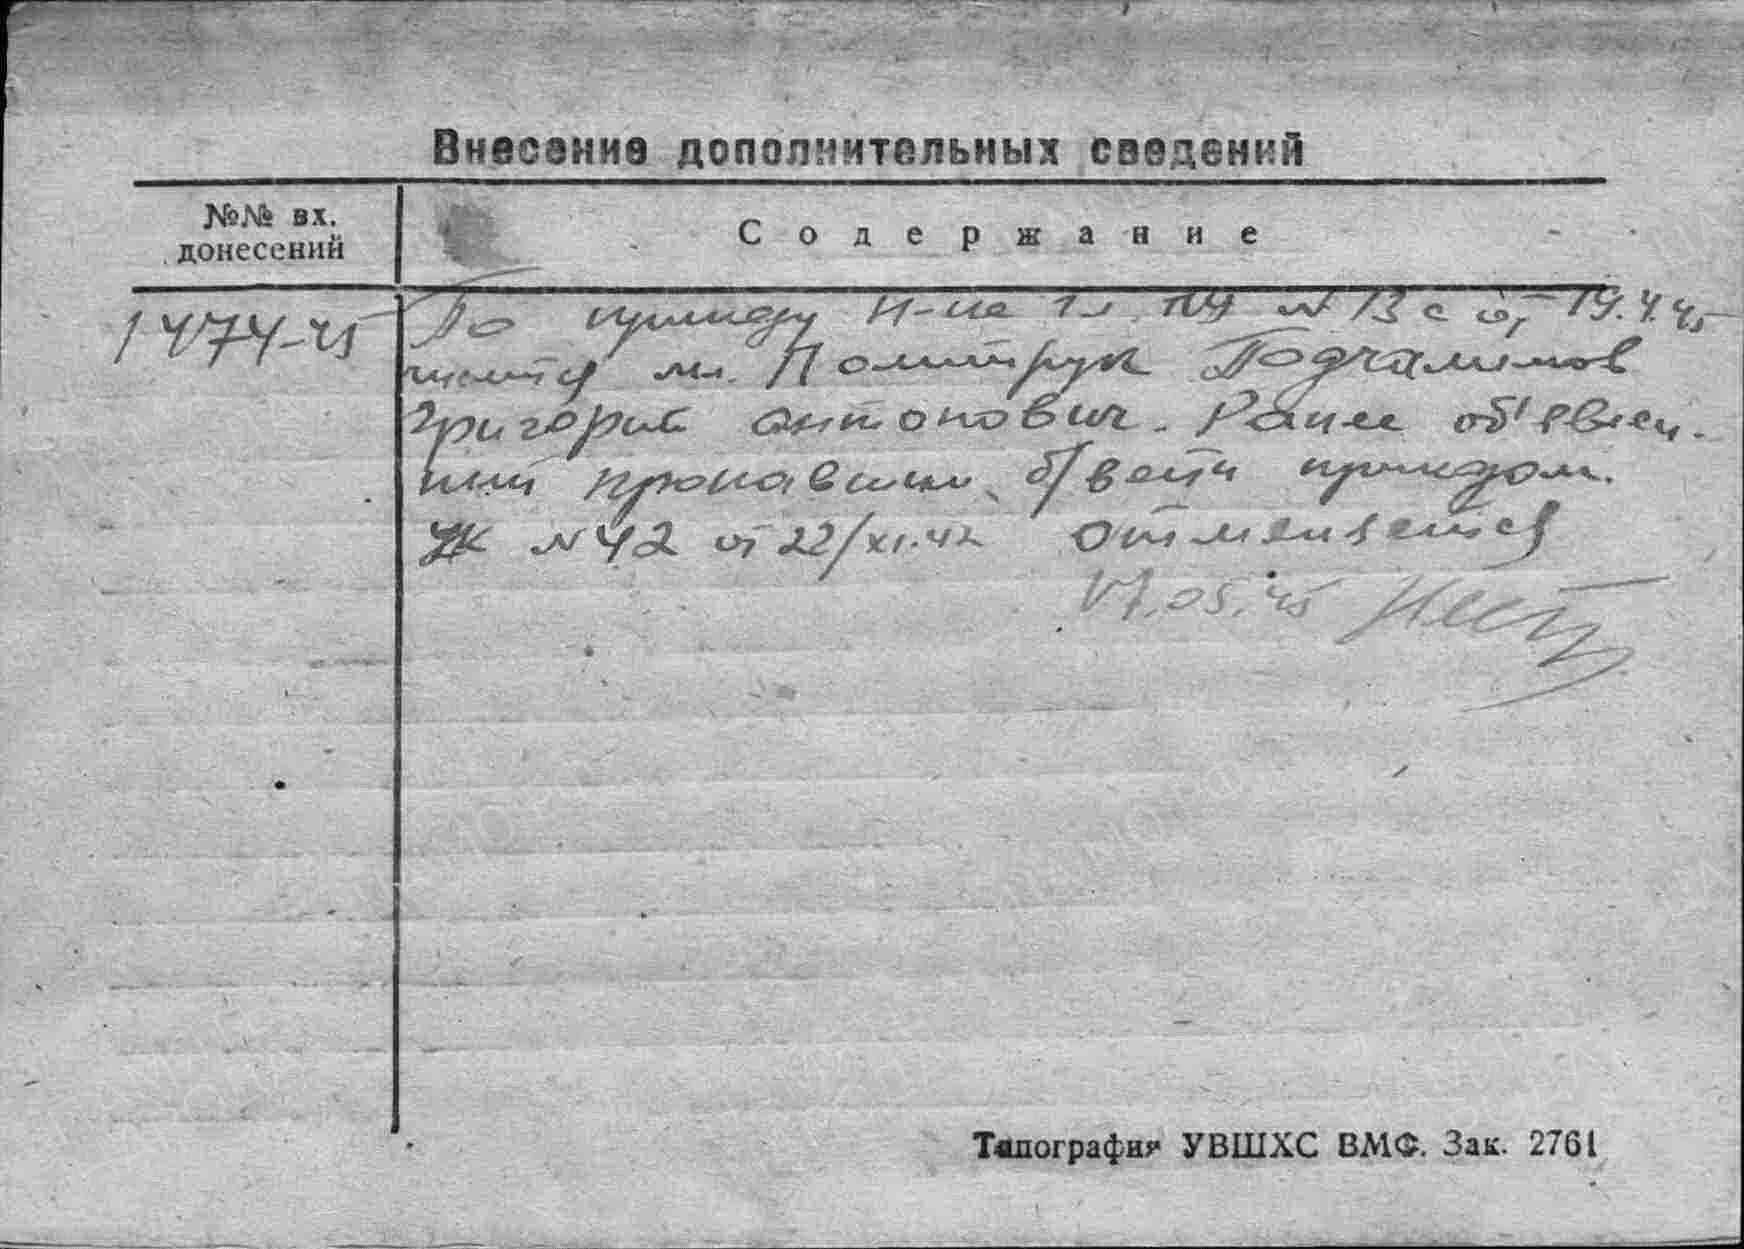 Внесение дополнительных сведений
№№ вх.
донесений
Содержание
1474-45
По приказу Н-ка Гл. ПУ № 13 с от 19.4.45
мл. Политрук Подчалимов
Григорий Антонович. Ранее об'явлен-
ный пропавшим б/вести приказом
УК № 42 от 22/XI.42 отменяется
17.05.45
Типография УВШХС ВМФ. Зак. 2761